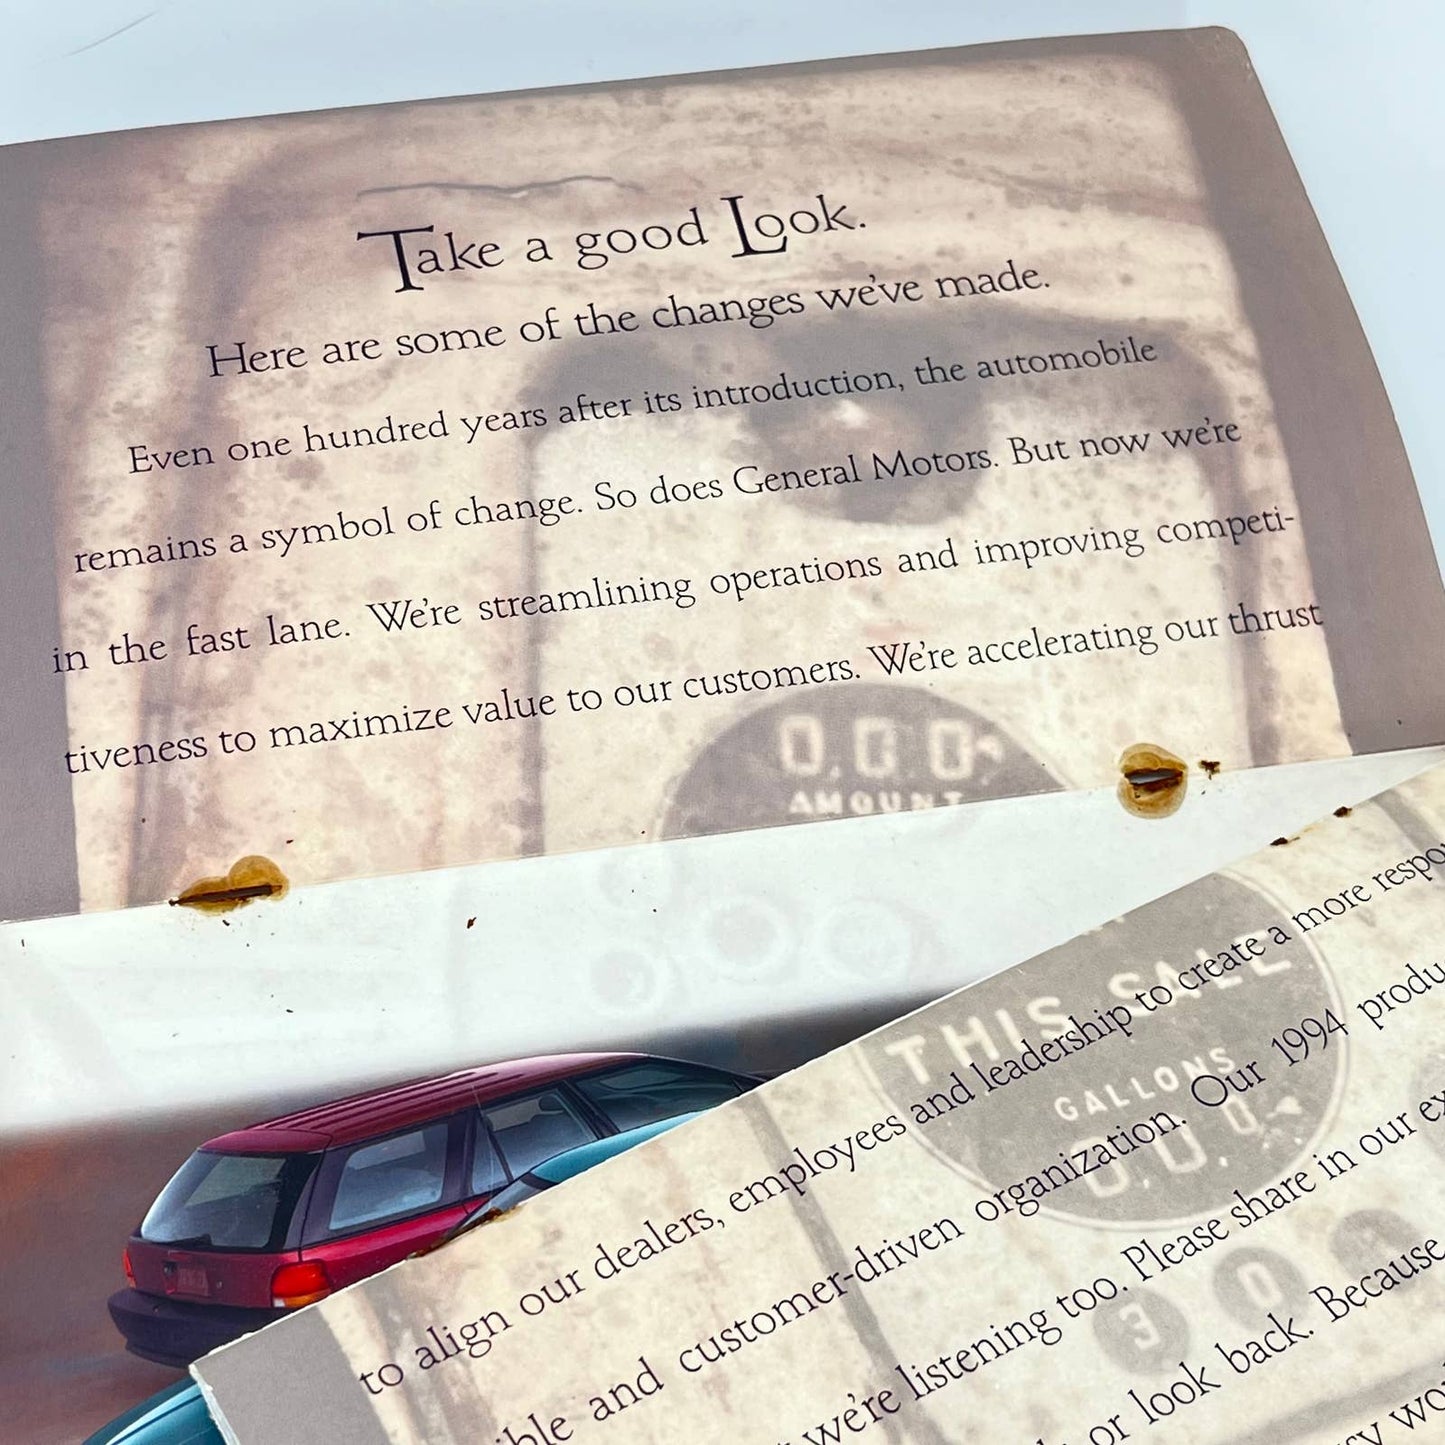 Take a good Look.
Here are some of the changes we've made.
Even one hundred years after its introduction, the automobile
remains a symbol of change. So does General Motors. But now we're
in the fast lane. We're streamlining operations and improving competi-
tiveness to maximize value to our customers. We're accelerating our thrust
0.0 0
AMOUNT
THIS SALE
GALLONS
0.0.0
3 0
to align our dealers, employees and leadership to create a more respo
ble and customer-driven organization. Our 1994 produ
we're listening too. Please share in our ex
or look back. Because